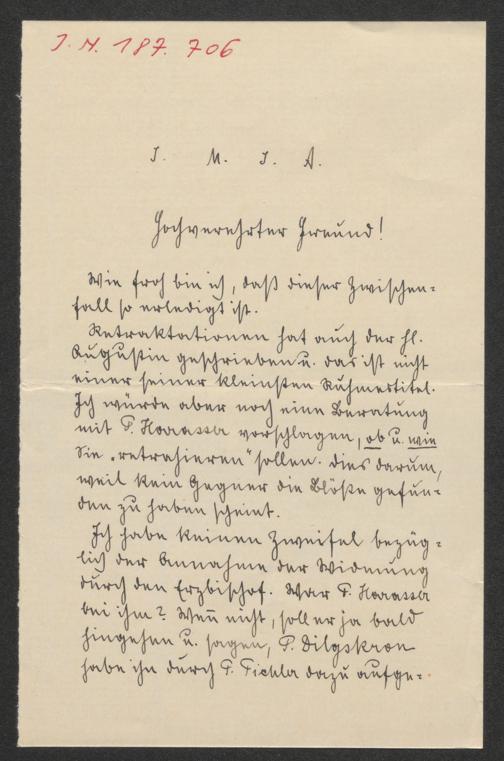 J. N. 187. 706
J. M. J. A.
Hochverehrter Freund!
Wie froh bin ich, daß dieser Zwischen=
fall so erledigt ist.
Retraktationen hat auch der hl.
Augustin geschrieben u. das ist nicht
einer seiner kleinsten Ruhmestitel.
Ich würde aber noch eine Beratung
mit P. Harasser vorschlagen, ob u. wie
Sie „retrahieren" sollen. Dies darum,
weil kein Gegner die Blöße gefun=
den zu haben scheint.
Ich habe keinen Zweifel bezüg=
lich der Annahme der Widmung
durch den Erzbischof. War P. Harasser
bei ihm? Wen̄ nicht, soll er ja bald
hingehen u. sagen, P. Dilgskron
habe ihn durch P. Pichler dazu aufge=